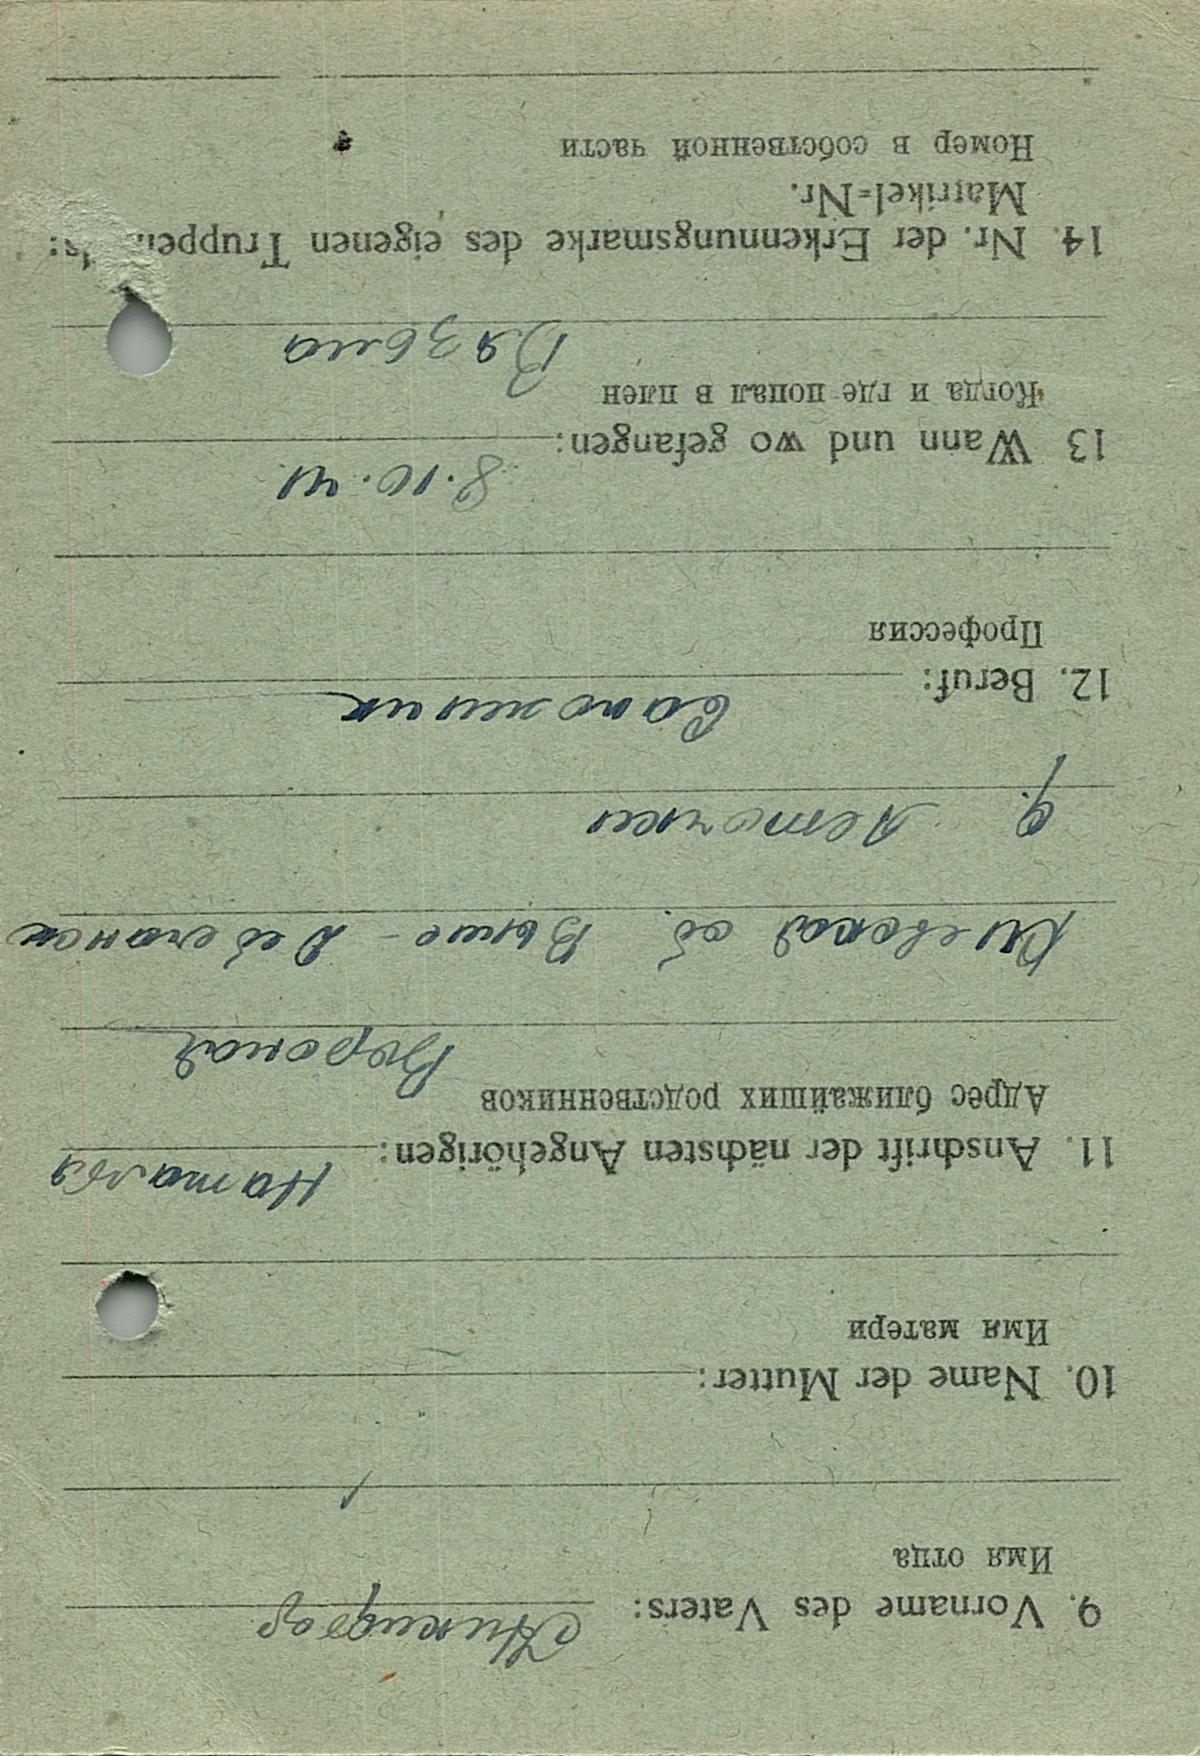 9. Vorname des Vaters: Никифор
Имя отца
10. Name der Mutter:
Имя матери
11. Anschrift der nächsten Angehörigen: Наталья
Адрес ближайших родственников
Киевская об. Выше-
д.
12. Beruf: Сапожник
Профессия
13 Wann und wo gefangen: 8.10.41
Когда и где попал в плен
Вязьма
14. Nr. der Erkennungsmarke des eigenen
Matrikel=Nr.
Номер в собственной части